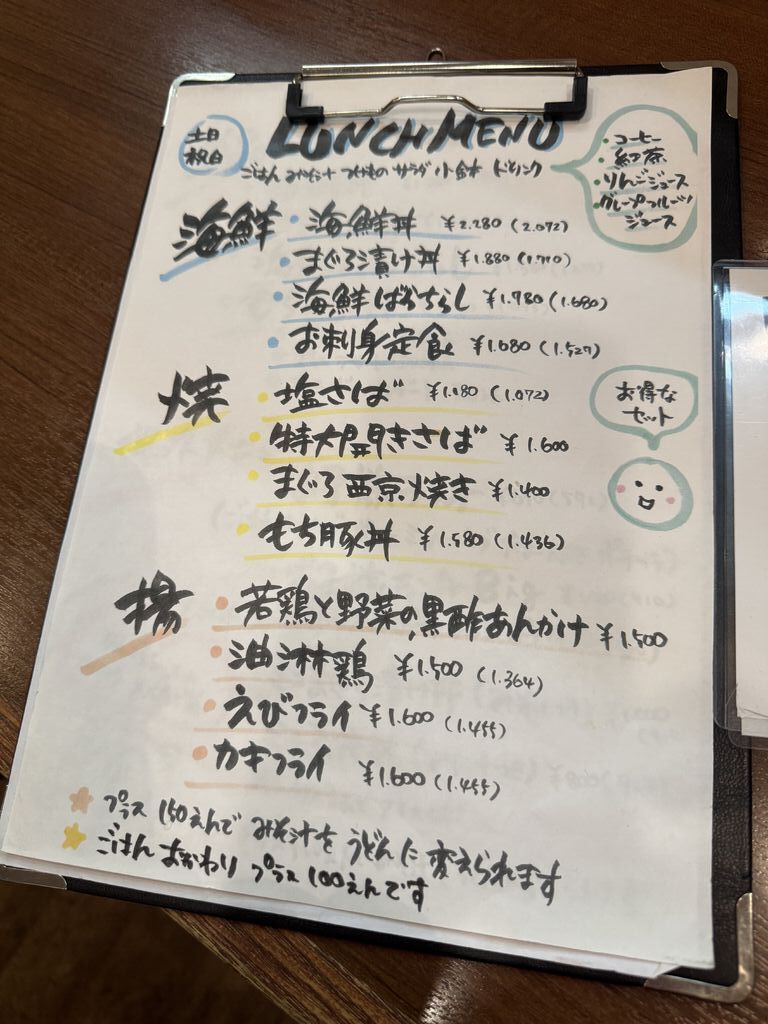 土日
祝日
LUNCH MENU
ごはん みそ汁 つけもの サラダ 小鉢 ドリンク
・コーヒー
・紅茶
・りんごジュース
・グレープフルーツ
ジュース
海鮮
・海鮮丼 ¥2.280 (2.072)
・まぐろ漬け丼 ¥1.880 (1.710)
・海鮮ばらちらし ¥1.780 (1.680)
・お刺身定食 ¥1.680 (1.527)
焼
・塩さば ¥1.180 (1.072)
・特大開きさば ¥1.600
・まぐろ西京焼き ¥1.400
・もち豚丼 ¥1.580 (1.436)
お得な
セット
揚
・若鶏と野菜の黒酢あんかけ ¥1.500
・油淋鶏 ¥1.500 (1.364)
・えびフライ ¥1.600 (1.455)
・カキフライ ¥1.600 (1.455)
プラス 150えんで みそ汁を うどんに 変えられます
ごはん おかわり プラス 100えんです